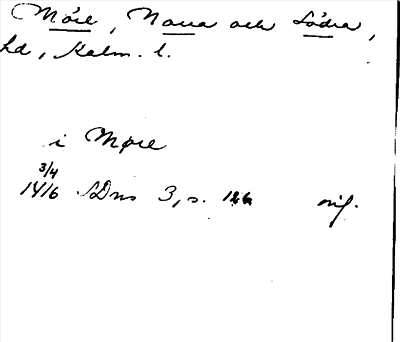 Möre, Norra och Södra,
hd, Kalm. l.
i Møre
3/4
1416 SDns 3, s. 126 orig.